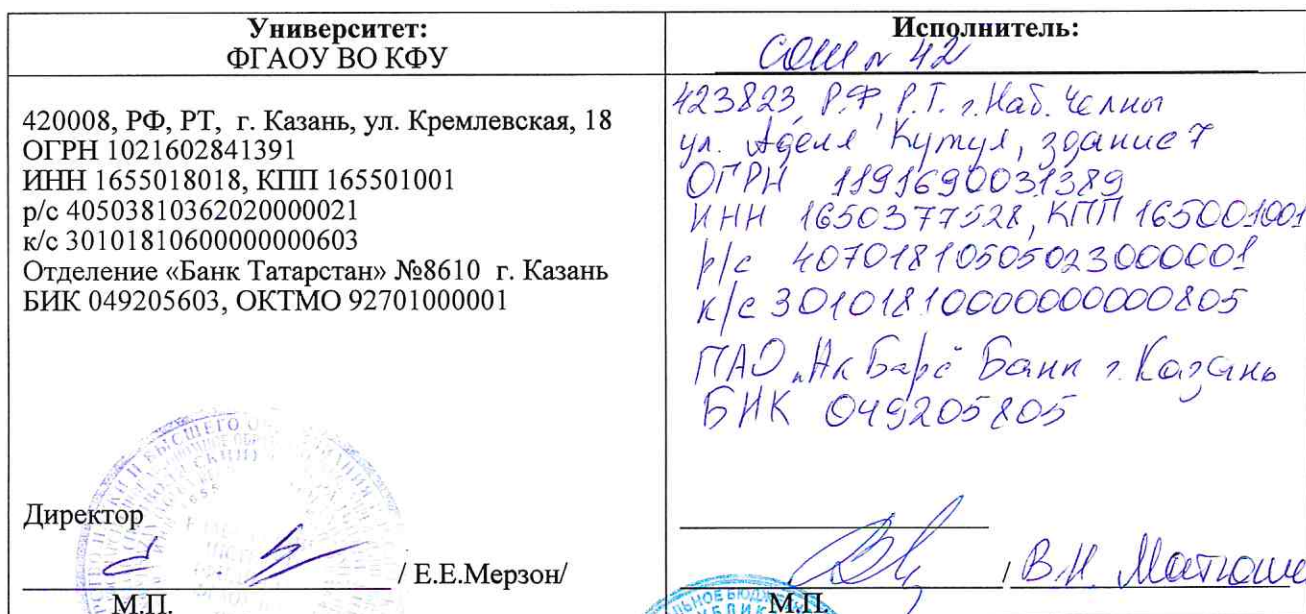 Университет:
ФГАОУ ВО КФУ
420008, РФ, РТ, г. Казань, ул. Кремлевская, 18
ОГРН 1021602841391
ИНН 1655018018, КПП 165501001
р/с 40503810362020000021
к/с 30101810600000000603
Отделение «Банк Татарстан» №8610 г. Казань
БИК 049205603, ОКТМО 92701000001
Директор
/ Е.Е.Мерзон/
М.П.
Исполнитель:
СОШ № 42
423823, Р.Ф, Р.Т. г. Наб. Челны
ул. Аделя Кутуя, здание 7
ОГРН 1191690031389
ИНН 1650377528, КПП 165001001
р/с 40701810505023000001
к/с 30101810000000000805
ПАО „Ак Барс" Банк г. Казань
БИК 049205805
/ В.Н.
М.П.